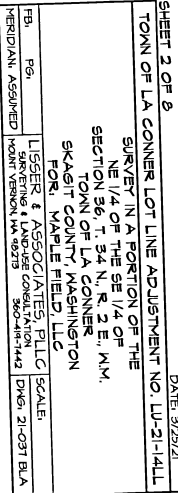 SHEET 2 OF 8
DATE: 3/25/21
TOWN OF LA CONNER LOT LINE ADJUSTMENT NO. LU-21-14LL
SURVEY IN A PORTION OF THE
NE 1/4 OF THE SE 1/4 OF
SECTION 36, T. 34 N., R. 2 E., W.M.
TOWN OF LA CONNER
SKAGIT COUNTY, WASHINGTON
FOR: MAPLE FIELD, LLC
FB: PG:
LISSER & ASSOCIATES, PLLC
SCALE:
SURVEYING & LAND-USE CONSULTATION
MERIDIAN: ASSUMED
MOUNT VERNON, WA 98273 360-419-7442
DWG: 21-037 BLA